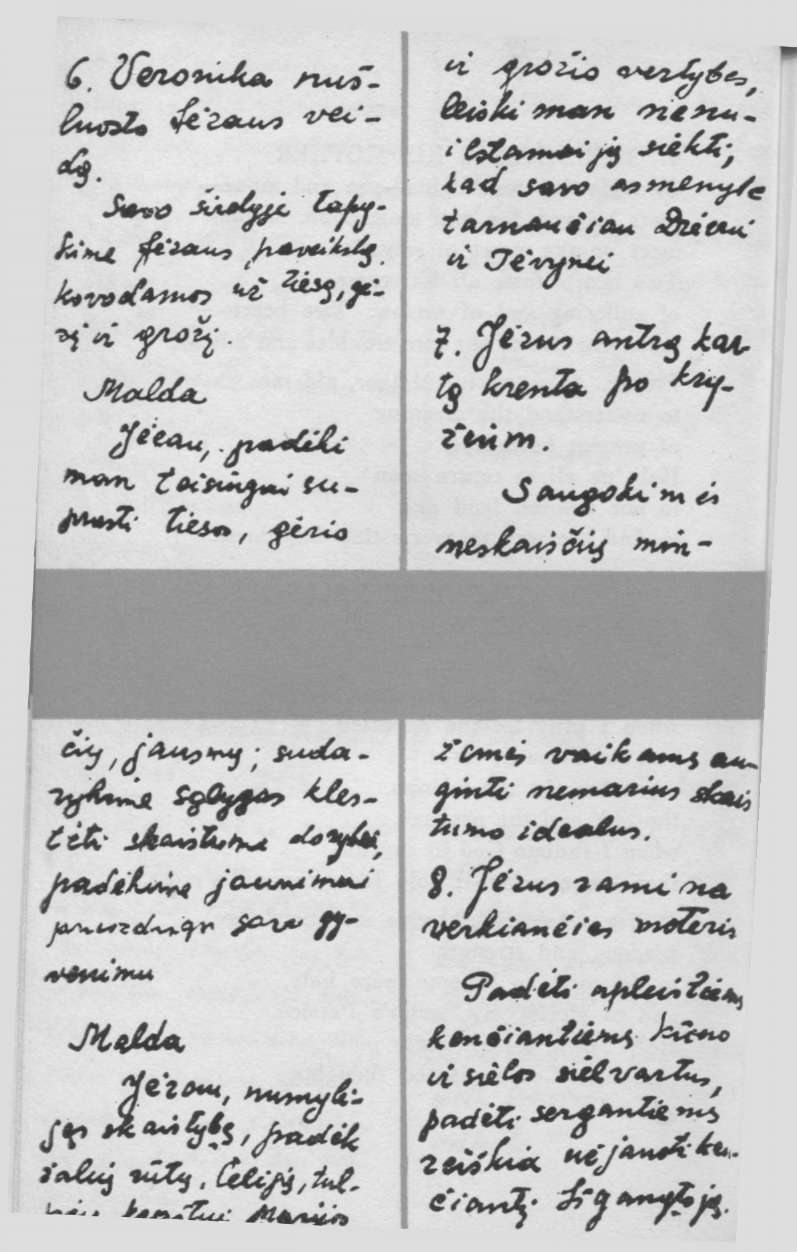 6. Veronika nuš-
luosto Jėzaus vei-
dą.
Savo širdyje tapy-
kime Jėzaus paveikslą
kovodamos už tiesą, gė-
rį ir grožį.
Malda
Jėzau, padėki
man teisingai su-
prasti tiesos, gėrio
ir grožio vertybes,
leiski man nenu-
ilstamai jų siekti,
kad savo asmenybe
tarnaučiau Dievui
ir Tėvynei
7. Jėzus antrą kar
tą krenta po kry-
žium.
Saugokimės
neskaisčių min-
čių, jausmų; suda-
rykime sąlygas kles-
tėti skaistumo dorybei,
padėkime jaunimui
savo gy-
venimu
Malda
Jėzau, numylė-
jęs skaistybę, padėk
žalių rūtų, lelijų, tul-
Marijos
žemės vaikams au-
ginti nemarius skais
tumo idealus.
8. Jėzus ramina
verkiančias moteris
Padėti apleistiems
kenčiantiems kūno
ir sielos sielvartus,
padėti sergantiems
reiškia užjausti ken-
čiantį Išganytoją.